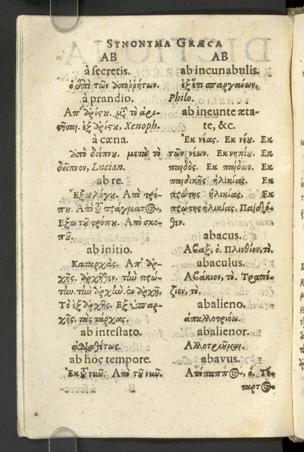 SYNONYMA GRÆCA
AB
à secretis.
ὁ ἐπὶ τῶν ἀποῤῥήτων.
à prandio.
Ἀπ' ἀρίστου. μετὰ τὸ
ἐξ ἀρίστου, Xenoph.
à cæna.
ἀπὸ δείπνου. μετὰ τὸ
δεῖπνον, Lucian.
ab re.
Ἔξω λόγου. Ἀπὸ τρό-
που. Ἀπὸ τοῦ πράγματος.
Ἔξω τοῦ τρόπου. Ἀπὸ σκο-
ποῦ.
ab initio.
Καταρχάς. Ἀπ' ἀρ-
χῆς. ἀρχῆθεν. τὴν πρώ-
την. τὴν ἀρχήν. ἐν ἀρχῇ.
Τὸ ἐξ ἀρχῆς. Ἐξ ὑπαρ-
χῆς. τὰς ἀρχάς.
ab intestato.
ἀδιαθέτως.
ab hoc tempore.
Ἐκ τοῦ νῦν. Ἀπὸ τοῦ νῦν.
AB
ab incunabulis.
ἐξ ἔτι σπαργάνων,
Philo.
ab ineunte æta-
te, &c.
Ἐκ νέας. Ἐκ νέου. Ἐκ
τῶν νέων. Ἐκ νηπίου. Ἐκ
παιδός. Ἐκ παίδων. Ἐκ
παιδικῆς ἡλικίας. Ἐκ
πρώτης ἡλικίας. Ἐκ
πρώτης ἡλικίας. Παιδόθεν.
abacus.
Ἄβαξ, ὁ. Πλινθίον, τό.
abaculus.
Ἀβάκιον, τό. Τραπέ-
ζιον, τό.
abalieno.
ἀπαλλοτριόω.
abalienor.
Ἀλλοτριοῦμαι.
abavus.
Ἀπόπαππος, ὁ. Τέ-
ταρτος